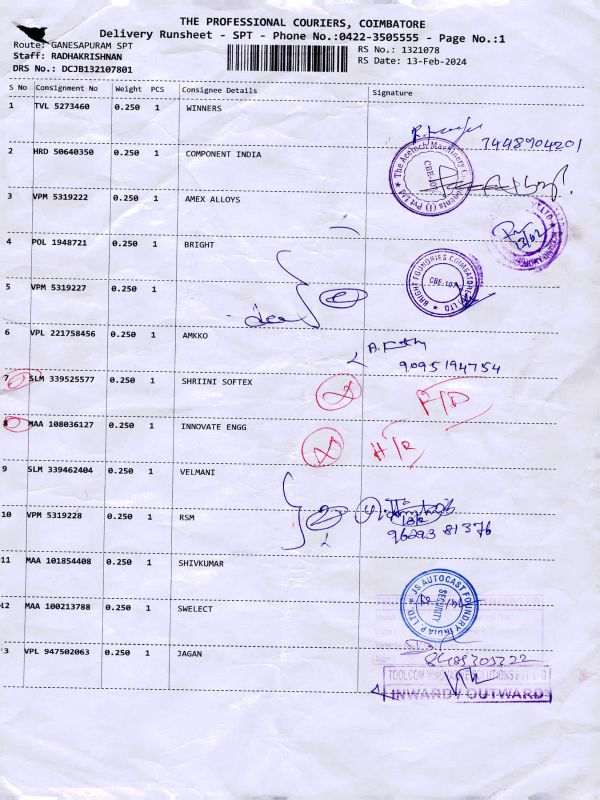 THE PROFESSIONAL COURIERS, COIMBATORE
Delivery Runsheet - SPT - Phone No.:0422-3505555 - Page No.:1
Route: GANESAPURAM SPT
Staff: RADHAKRISHNAN
DRS No.: DCJB132107801
RS No.: 1321078
RS Date: 13-Feb-2024
S No Consignment No Weight PCS Consignee Details Signature
1 TVL 5273460 0.250 1 WINNERS
7448904201
2 HRD 50640350 0.250 1 COMPONENT INDIA
CBE-107
3 VPM 5319222 0.250 1 AMEX ALLOYS
13/02
4 POL 1948721 0.250 1 BRIGHT
BRIGHT FOUNDRIES COIMBATORE
CBE-107
5 VPM 5319227 0.250 1
6 VPL 221758456 0.250 1 AMKKO
9095194754
7 SLM 339525577 0.250 1 SHRIINI SOFTEX
8 MAA 108036127 0.250 1 INNOVATE ENGG
9 SLM 339462404 0.250 1 VELMANI
10 VPM 5319228 0.250 1 RSM
96293 81376
11 MAA 101854408 0.250 1 SHIVKUMAR
JS AUTOCAST FOUNDRY INDIA P. LTD.
SECURITY
12 MAA 100213788 0.250 1 SWELECT
13 VPL 947502063 0.250 1 JAGAN
INWARD / OUTWARD